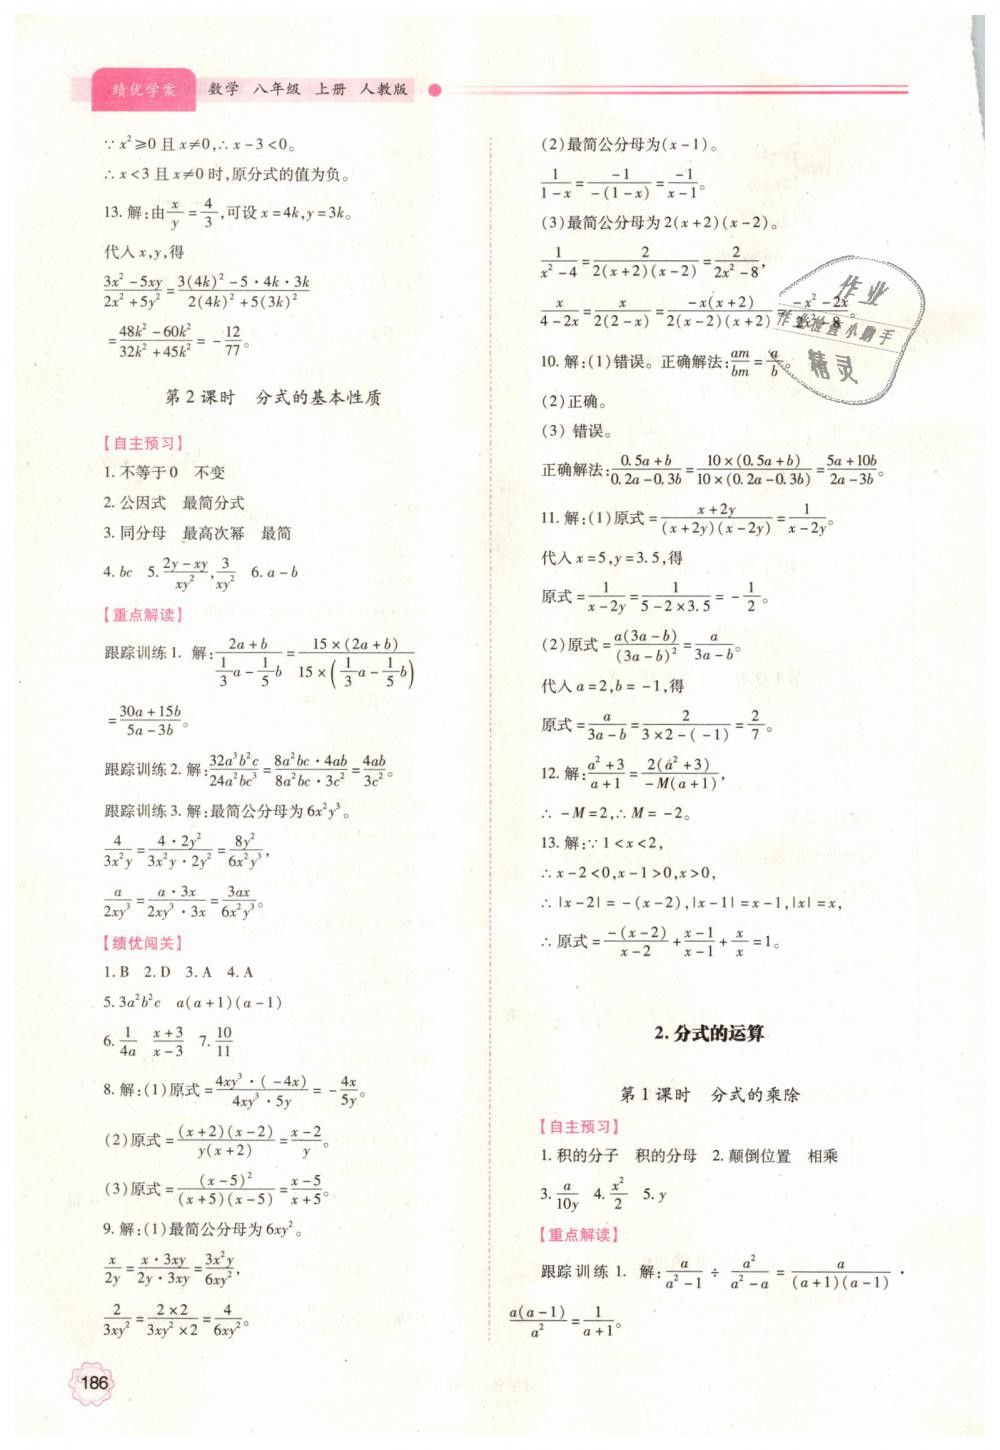 绩优学案 数学 八年级 上册 人教版
∵x²≥0且x≠0,∴x-3<0。
∴x<3且x≠0时,原分式的值为负。
13.解:由x/y=4/3,可设x=4k,y=3k。
代入x,y,得
(3x²-5xy)/(2x²+5y²)=(3(4k)²-5·4k·3k)/(2(4k)²+5(3k)²)
=(48k²-60k²)/(32k²+45k²)=-12/77。
第2课时 分式的基本性质
【自主预习】
1.不等于0 不变
2.公因式 最简分式
3.同分母 最高次幂 最简
4.bc 5.(2y-xy)/xy²,3/xy² 6.a-b
【重点解读】
跟踪训练1. 解:(2a+b)/(1/3a-1/5b)=(15×(2a+b))/(15×(1/3a-1/5b))
=(30a+15b)/(5a-3b)。
跟踪训练2.解:32a³b²c/24a²bc³=(8a²bc·4ab)/(8a²bc·3c²)=4ab/3c²。
跟踪训练3.解:最简公分母为6x²y³。
4/3x²y=(4·2y²)/(3x²y·2y²)=8y²/6x²y³,
a/2xy³=(a·3x)/(2xy³·3x)=3ax/6x²y³。
【绩优闯关】
1.B 2.D 3.A 4.A
5.3a²b²c a(a+1)(a-1)
6.1/4a (x+3)/(x-3) 7.10/11
8.解:(1)原式=(4xy³·(-4x))/(4xy³·5y)=-4x/5y。
(2)原式=((x+2)(x-2))/(y(x+2))=(x-2)/y。
(3)原式=(x-5)²/((x+5)(x-5))=(x-5)/(x+5)。
9.解:(1)最简公分母为6xy²。
x/2y=(x·3xy)/(2y·3xy)=3x²y/6xy²,
2/3xy²=(2×2)/(3xy²×2)=4/6xy²。
186
(2)最简公分母为(x-1)。
1/(1-x)=-1/(-(1-x))=-1/(x-1)。
(3)最简公分母为2(x+2)(x-2)。
1/(x²-4)=2/(2(x+2)(x-2))=2/(2x²-8),
x/(4-2x)=x/(2(2-x))=(-x(x+2))/(2(x-2)(x+2))=(-x²-2x)/(2x²-8)。
作业
作业检查小助手
精灵
10.解:(1)错误。正确解法:am/bm=a/b。
(2)正确。
(3) 错误。
正确解法:(0.5a+b)/(0.2a-0.3b)=(10×(0.5a+b))/(10×(0.2a-0.3b))=(5a+10b)/(2a-3b)。
11.解:(1)原式=(x+2y)/((x+2y)(x-2y))=1/(x-2y)。
代入x=5,y=3.5,得
原式=1/(x-2y)=1/(5-2×3.5)=-1/2。
(2)原式=(a(3a-b))/(3a-b)²=a/(3a-b)。
代入a=2,b=-1,得
原式=a/(3a-b)=2/(3×2-(-1))=2/7。
12.解:(a²+3)/(a+1)=(2(a²+3))/(-M(a+1)),
∴-M=2,∴M=-2。
13.解:∵1<x<2,
∴x-2<0,x-1>0,x>0,
∴|x-2|=-(x-2),|x-1|=x-1,|x|=x,
∴原式=(-(x-2))/(x-2)+(x-1)/(x-1)+x/x=1。
2.分式的运算
第1课时 分式的乘除
【自主预习】
1.积的分子 积的分母 2.颠倒位置 相乘
3.a/10y 4.x²/2 5.y
【重点解读】
跟踪训练1. 解:a/(a²-1)÷a²/(a²-a)=a/((a+1)(a-1))·
(a(a-1))/a²=1/(a+1)。